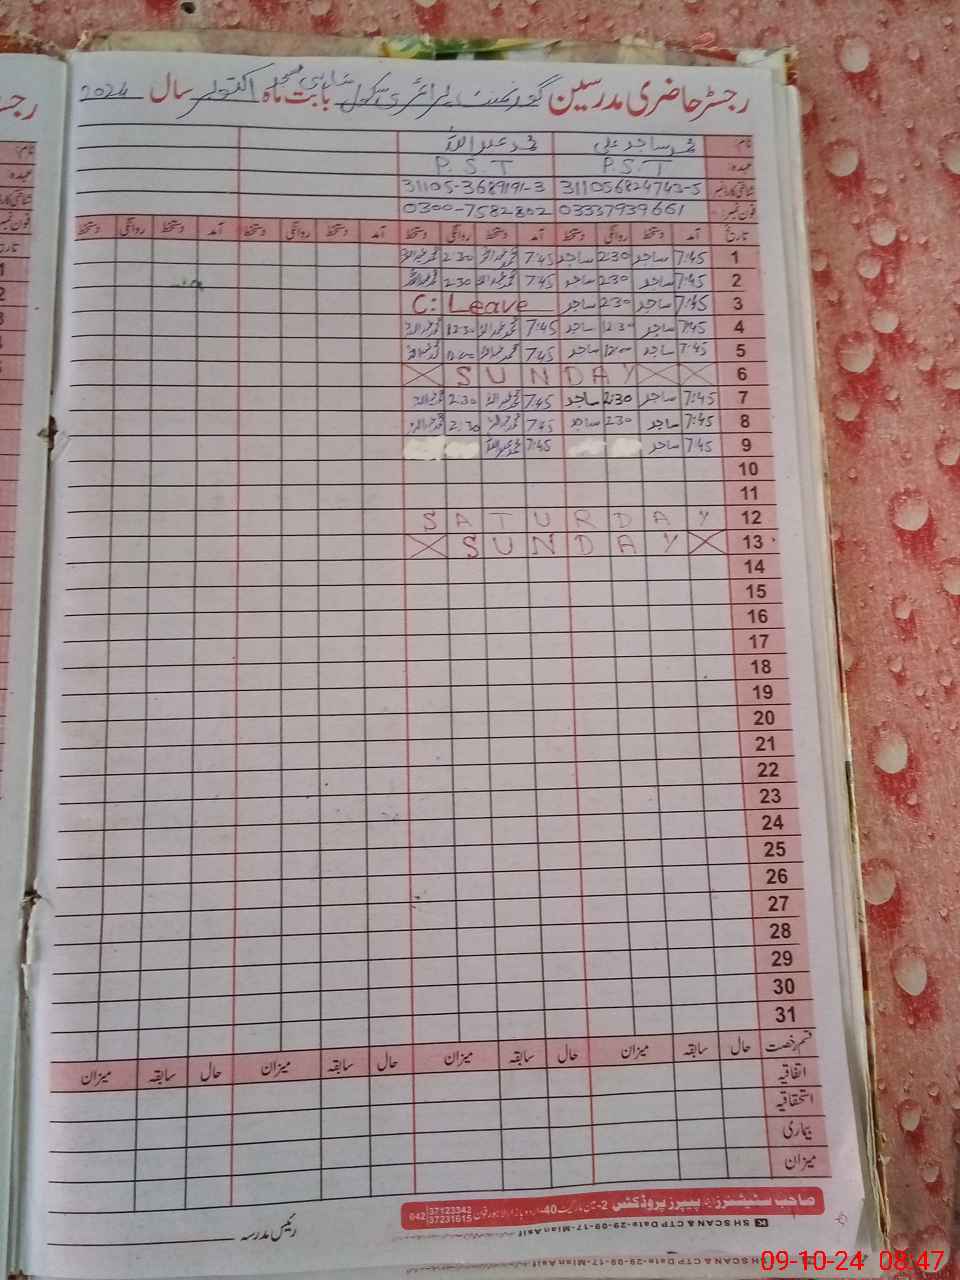 رجسٹر حاضری مدرسین گورنمنٹ پرائمری سکول بابت ماہ اکتوبر سال 2024
نام: محمد ساجد علی محمد عبداللہ
عہدہ P.S.T P.S.T
شناختی کارڈ نمبر 311056824743-5 31105-3689191-3
فون نمبر: 03337939661 0300-7582802
تاریخ آمد دستخط روانگی دستخط آمد دستخط روانگی دستخط آمد دستخط روانگی دستخط آمد دستخط روانگی دستخط
1 7:45 ساجد 2:30 ساجد 7:45 محمد عبداللہ 2:30 محمد عبداللہ
2 7:45 ساجد 2:30 ساجد 7:45 محمد عبداللہ 2:30 محمد عبداللہ
3 7:45 ساجد 2:30 ساجد C: Leave
4 7:45 ساجد 12:30 ساجد 7:45 محمد عبداللہ 12:30 محمد عبداللہ
5 7:45 ساجد 12:00 ساجد 7:45 محمد عبداللہ 12:00 محمد عبداللہ
6 SUNDAY
7 7:45 ساجد 2:30 ساجد 7:45 محمد عبداللہ 2:30 محمد عبداللہ
8 7:45 ساجد 2:30 ساجد 7:45 محمد عبداللہ 2:30 محمد عبداللہ
9 7:45 ساجد 7:45 محمد عبداللہ
10
11
12 SATURDAY
13 SUNDAY
14
15
16
17
18
19
20
21
22
23
24
25
26
27
28
29
30
31
قسم رخصت حال سابقہ میزان حال سابقہ میزان حال سابقہ میزان حال سابقہ میزان
اتفاقیہ
استحقاقیہ
بیماری
میزان
صاحب سٹیشنرز اینڈ پیپرز پروڈکٹس
042 37123342
37231615
K SH SCAN & CTP Date-29-09-17-Mian Asif
رئیس مدرسہ
09-10-24 08:47